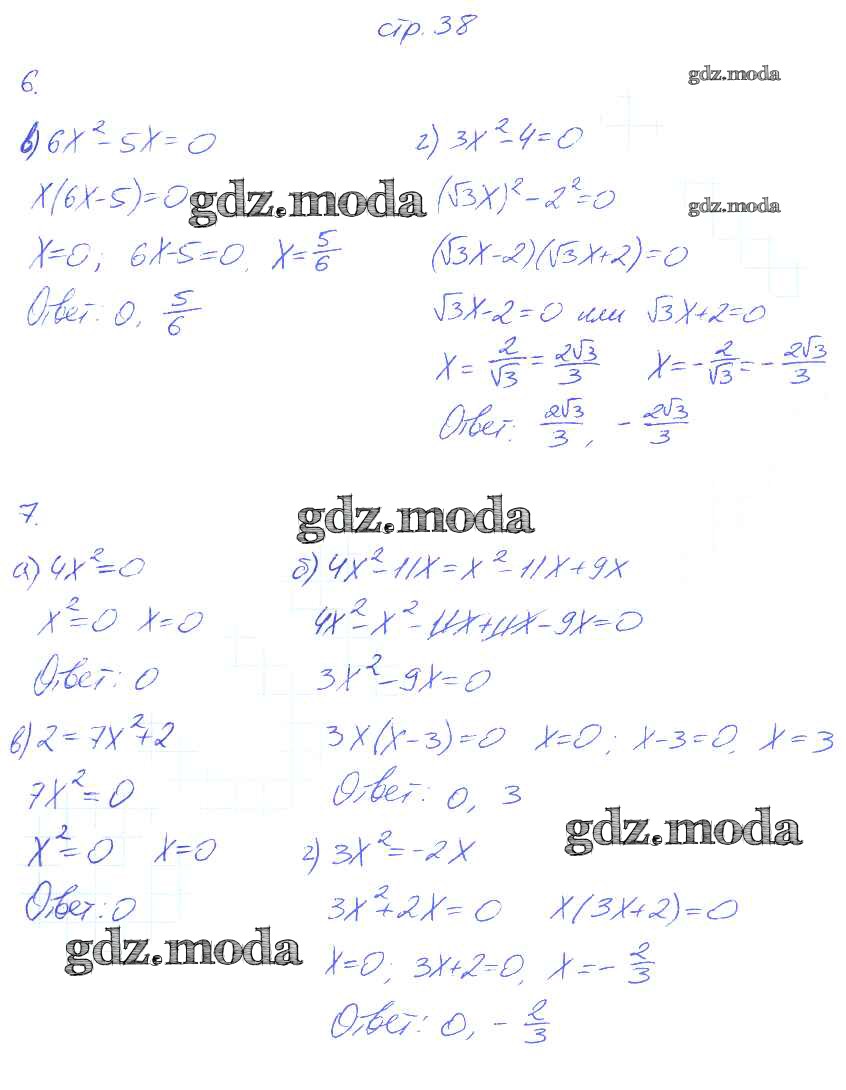 стр. 38
6.
gdz.moda
в) 6x² - 5x = 0
x(6x - 5) = 0
gdz.moda
x = 0; 6x - 5 = 0, x = 5/6
Ответ: 0, 5/6
г) 3x² - 4 = 0
(√3x)² - 2² = 0
gdz.moda
(√3x - 2)(√3x + 2) = 0
√3x - 2 = 0 или √3x + 2 = 0
x = 2/√3 = 2√3/3 x = - 2/√3 = - 2√3/3
Ответ: 2√3/3, - 2√3/3
7.
gdz.moda
а) 4x² = 0
x² = 0 x = 0
Ответ: 0
б) 4x² - 11x = x² - 11x + 9x
4x² - x² - 11x + 11x - 9x = 0
3x² - 9x = 0
3x(x - 3) = 0 x = 0; x - 3 = 0, x = 3
Ответ: 0, 3
gdz.moda
в) 2 = 7x² + 2
7x² = 0
x² = 0 x = 0
Ответ: 0
gdz.moda
г) 3x² = -2x
3x² + 2x = 0 x(3x + 2) = 0
x = 0; 3x + 2 = 0, x = - 2/3
Ответ: 0, - 2/3